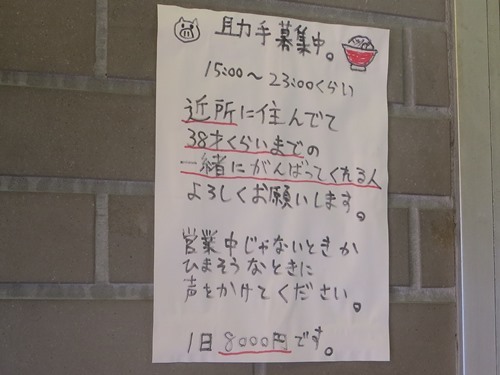 助手募集中。
15:00～23:00くらい
近所に住んでて
38才くらいまでの
一緒にがんばってくれる人
よろしくお願いします。
営業中じゃないときか
ひまそうなときに
声をかけてください。
1日8000円です。